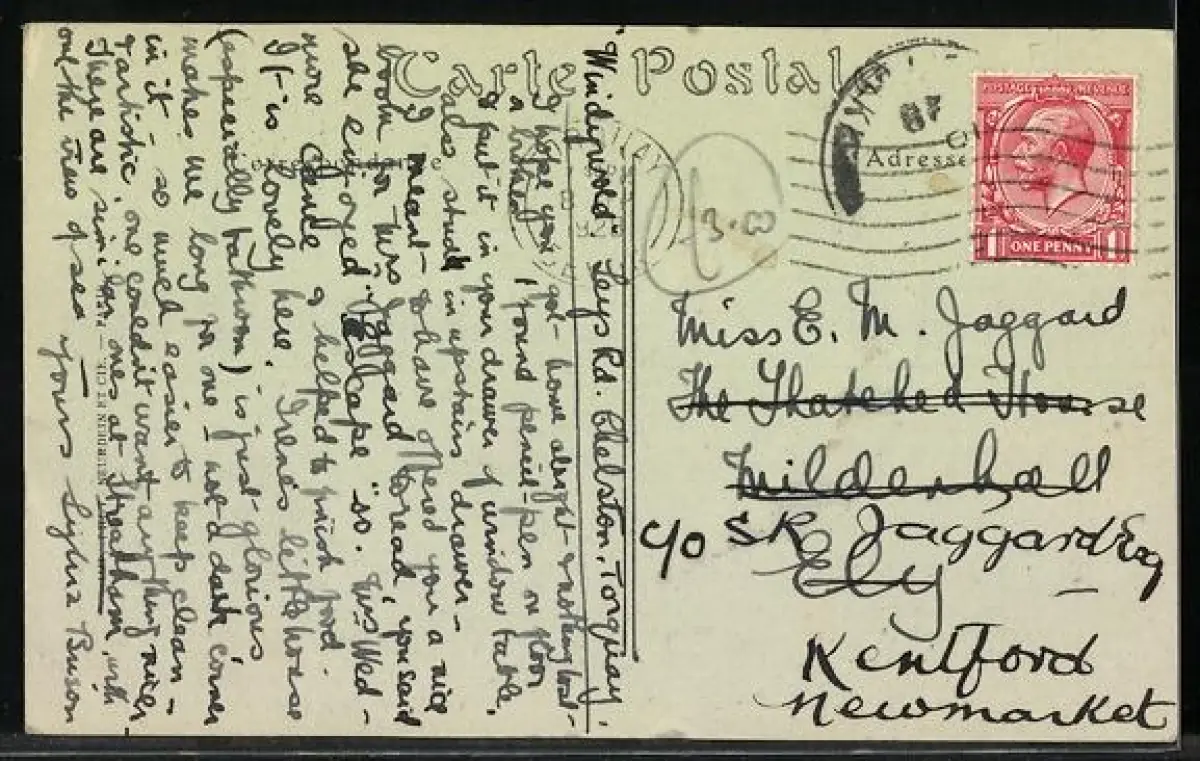 Carte Postale
Adresse
POSTAGE REVENUE
1 ONE PENNY 1
13.00
Miss E. M. Jaggard
The Thatched House
Mildenhall
C/o S R Jaggard Esq
Ely
Kentford
Newmarket
"Windywold", Leys Rd. Chelston, Torquay.
I hope you got home alright & nothing lost -
a brother I found pencil-pen on floor
& put it in your drawer of window table,
also studs in upstairs drawer -
I meant to have offered you a nice
book for Mrs Jaggard to read, you said
she enjoyed "Escape" so. This Wed -
more came & helped to finish food.
It is lovely here. Irene's little house
(especially bathroom) is just glorious
makes me long for one - not a dark corner
in it - so much easier to keep clean -
& artistic, one couldn't want anything nicer.
These are similar ones at Streatham, with
out the view of sea
Yours Sylvia